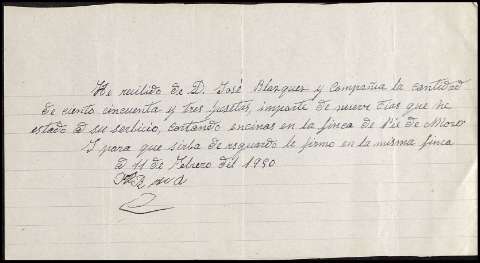 He recibido de D. José Blazquez y Compañia la cantidad
de ciento cincuenta y tres pesetas, importe de nueve dias que he
estado a su serbicio, cortando encinas en la finca de Pié de Moro
I para que sirba de resguardo le firmo en la misma finca
a 11 de Febrero del 1950